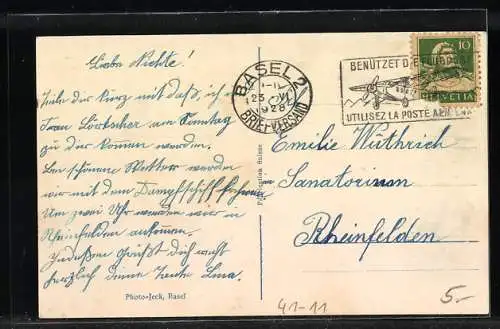 Liebe Nichte!
Teile dir kurz mit daß, ich u.
Frau Lörtscher am Sonntag
zu dir kommen werden.
Bei schönem Wetter werden
wir mit dem Dampfschiff fahren
Um zwei Uhr werden wir in
Rheinfelden ankommen.
Indessen grüßt dich recht
herzlich deine Tante Lina.
Photo-Jeck, Basel
BASEL 2
BRIEFVERSAND
1928
BENÜTZET D
UTILISEZ LA POSTE AER
10
HELVETIA
Emilie Wüthrich
Sanatorium
Rheinfelden
41-11
5.-